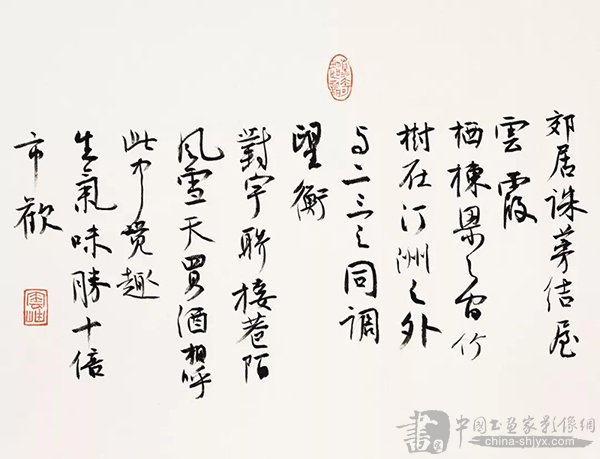 郊居誅茅结屋
雲霞
栖棟梁之间竹
樹在汀洲之外
与二三之同調
望衡
對宇聯接巷陌
風雪天買酒相呼
此中覺趣
生氣味勝十倍
市歡
書
中国书画家影像網
china-shjyx.com